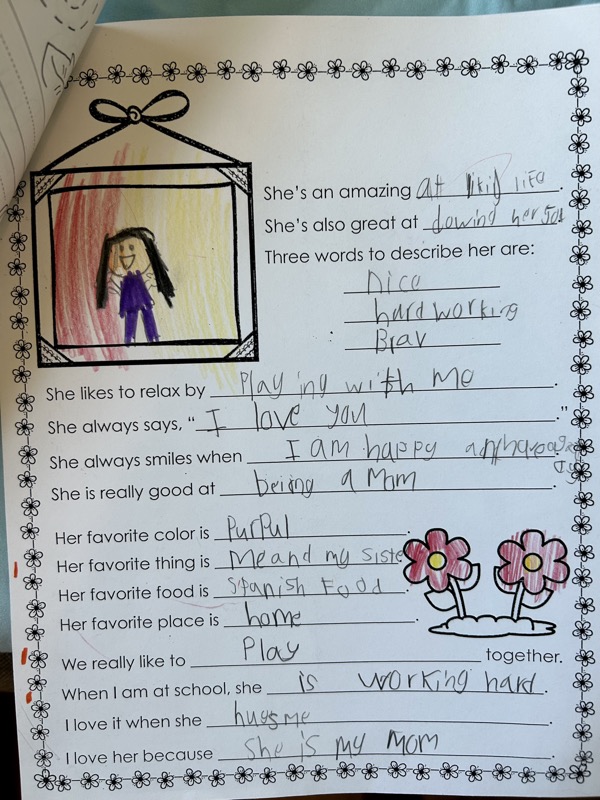 She's an amazing at life.
She's also great at dowing her Job.
Three words to describe her are:
Nice
hardworking
Brav
She likes to relax by Playing with Me.
She always says, "I love you."
She always smiles when I am happy
She is really good at being a Mom.
Her favorite color is PurPul.
Her favorite thing is Me and my siste
Her favorite food is Spanish Food.
Her favorite place is home.
We really like to Play together.
When I am at school, she is working hard.
I love it when she hugs me.
I love her because she is my Mom.